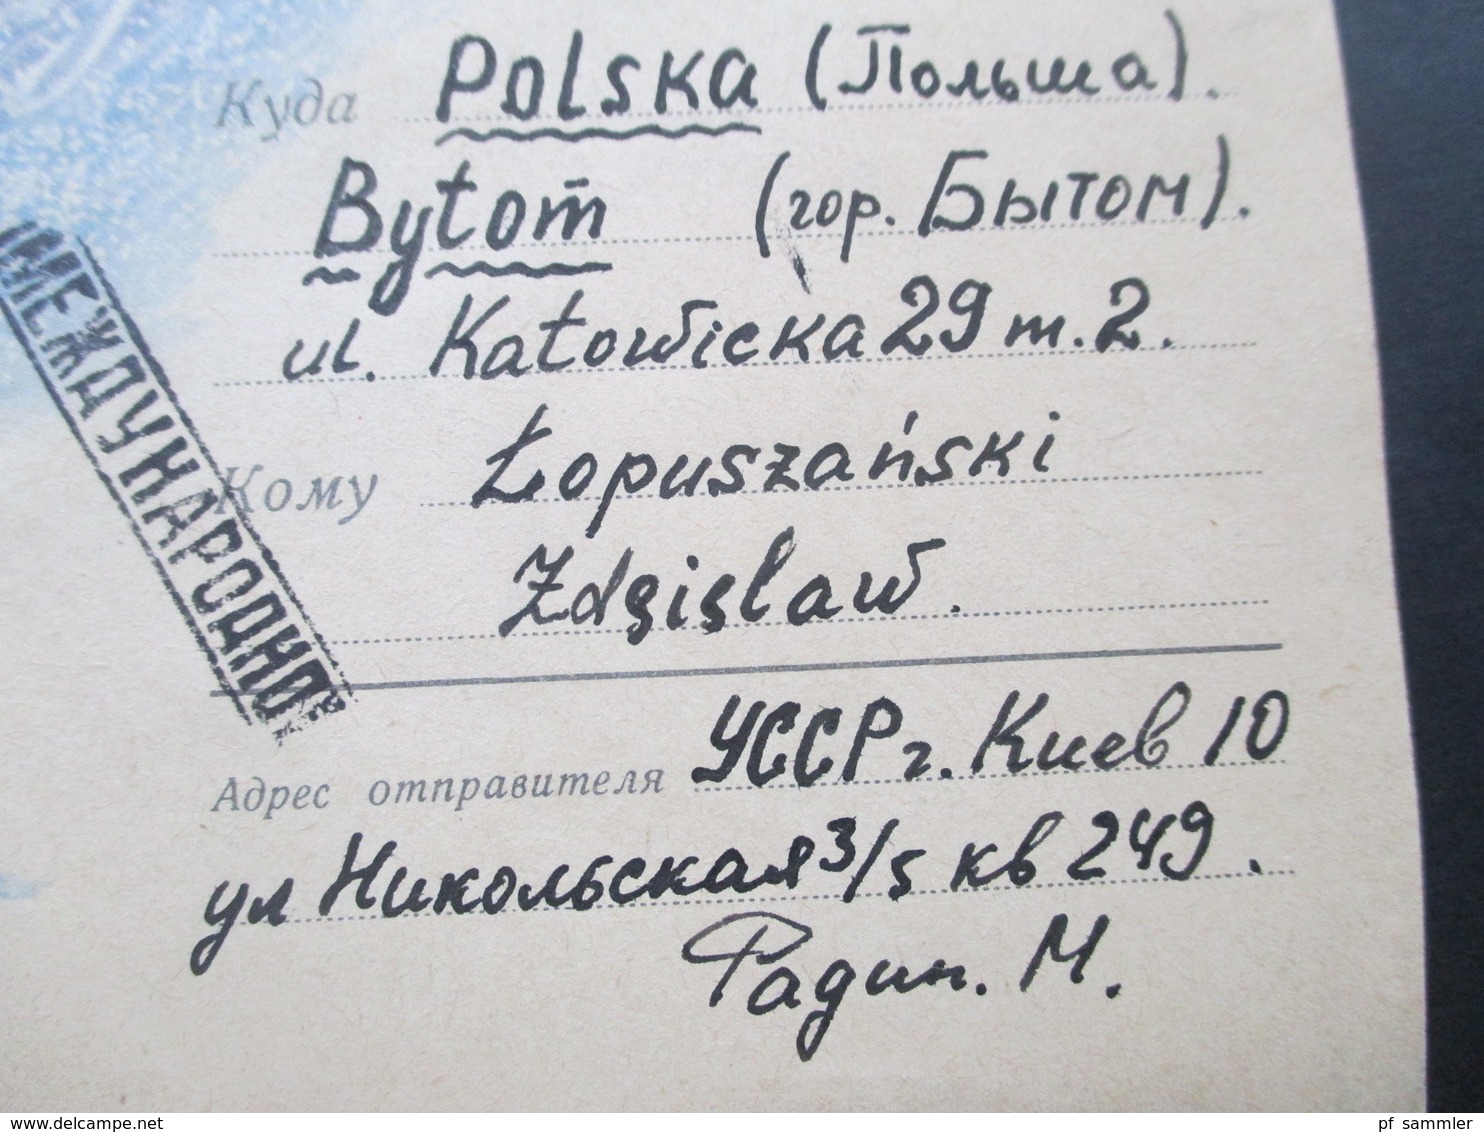 Куда Polska (Польша).
Bytom (гор. Бытом).
ul. Katowicka 29 m. 2.
Кому Łopuszański
Zdzisław.
МЕЖДУНАРОДНОЕ
Адрес отправителя УССР г. Киев 10
ул Никольская 3/5 кв 249.
Радин. М.
www.delcampe.net
pf_sammler